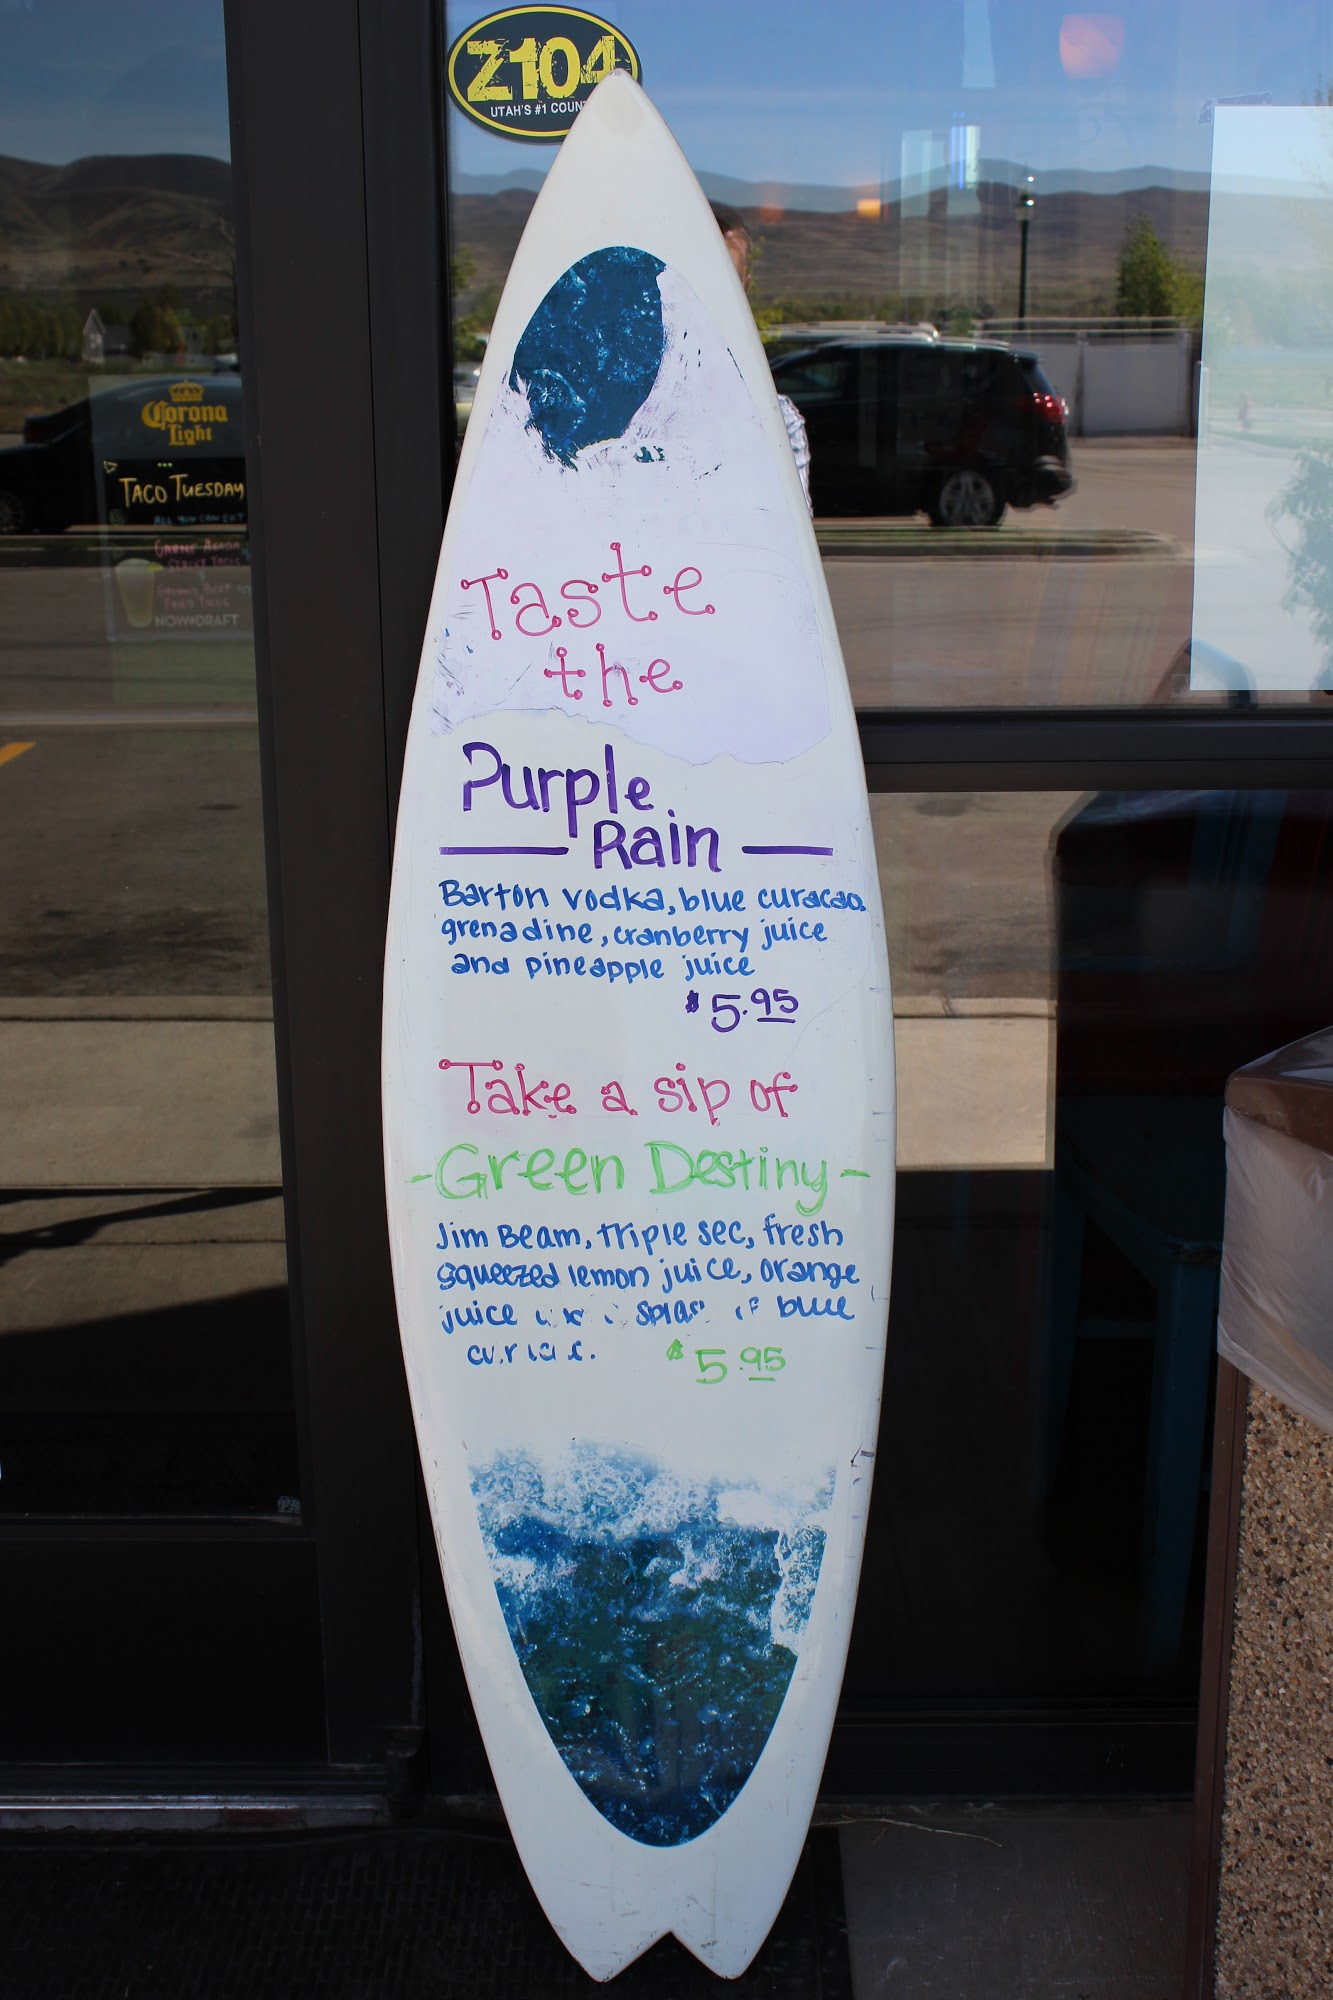 Z104
UTAH'S #1
Corona
Light
TACO TUESDAY
ALL YOU CAN EAT
CARNE ASADA
STREET TACOS
GROUND BEEF
FRIED TACOS
NOW ON DRAFT
Taste
the
Purple
Rain
Barton vodka, blue curacao,
grenadine, cranberry juice
and pineapple juice
$5.95
Take a sip of
-Green Destiny-
Jim Beam, triple sec, fresh
squeezed lemon juice, orange
juice blue
$5.95